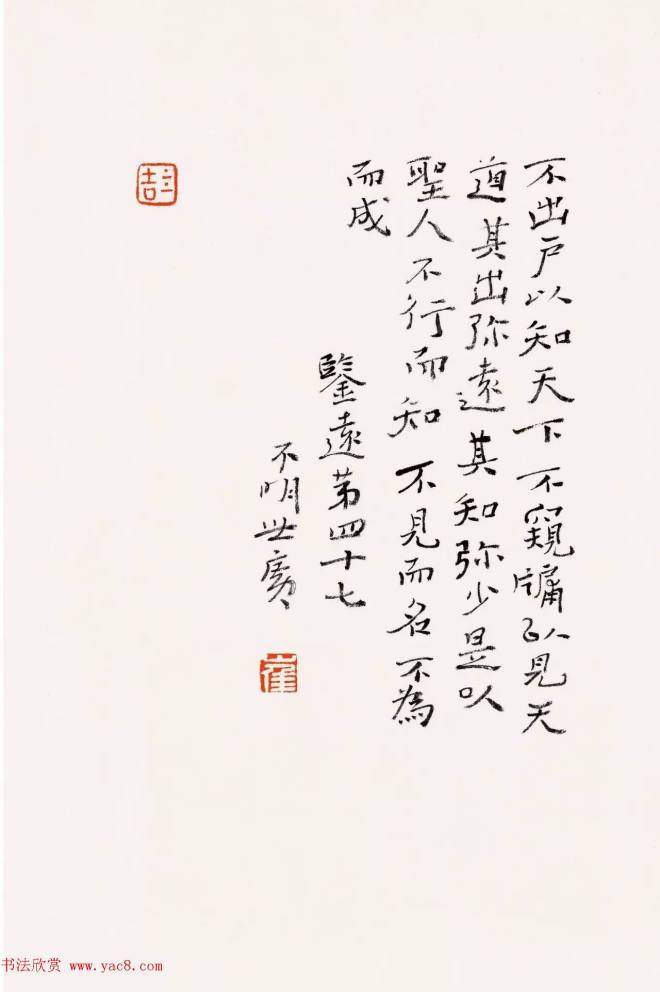 不出户以知天下不窺牖以見天
道其出弥遠其知弥少是以
聖人不行而知不見而名不為
而成
鑒遠第四十七
不明世廣
崔
书法欣赏 www.yac8.com